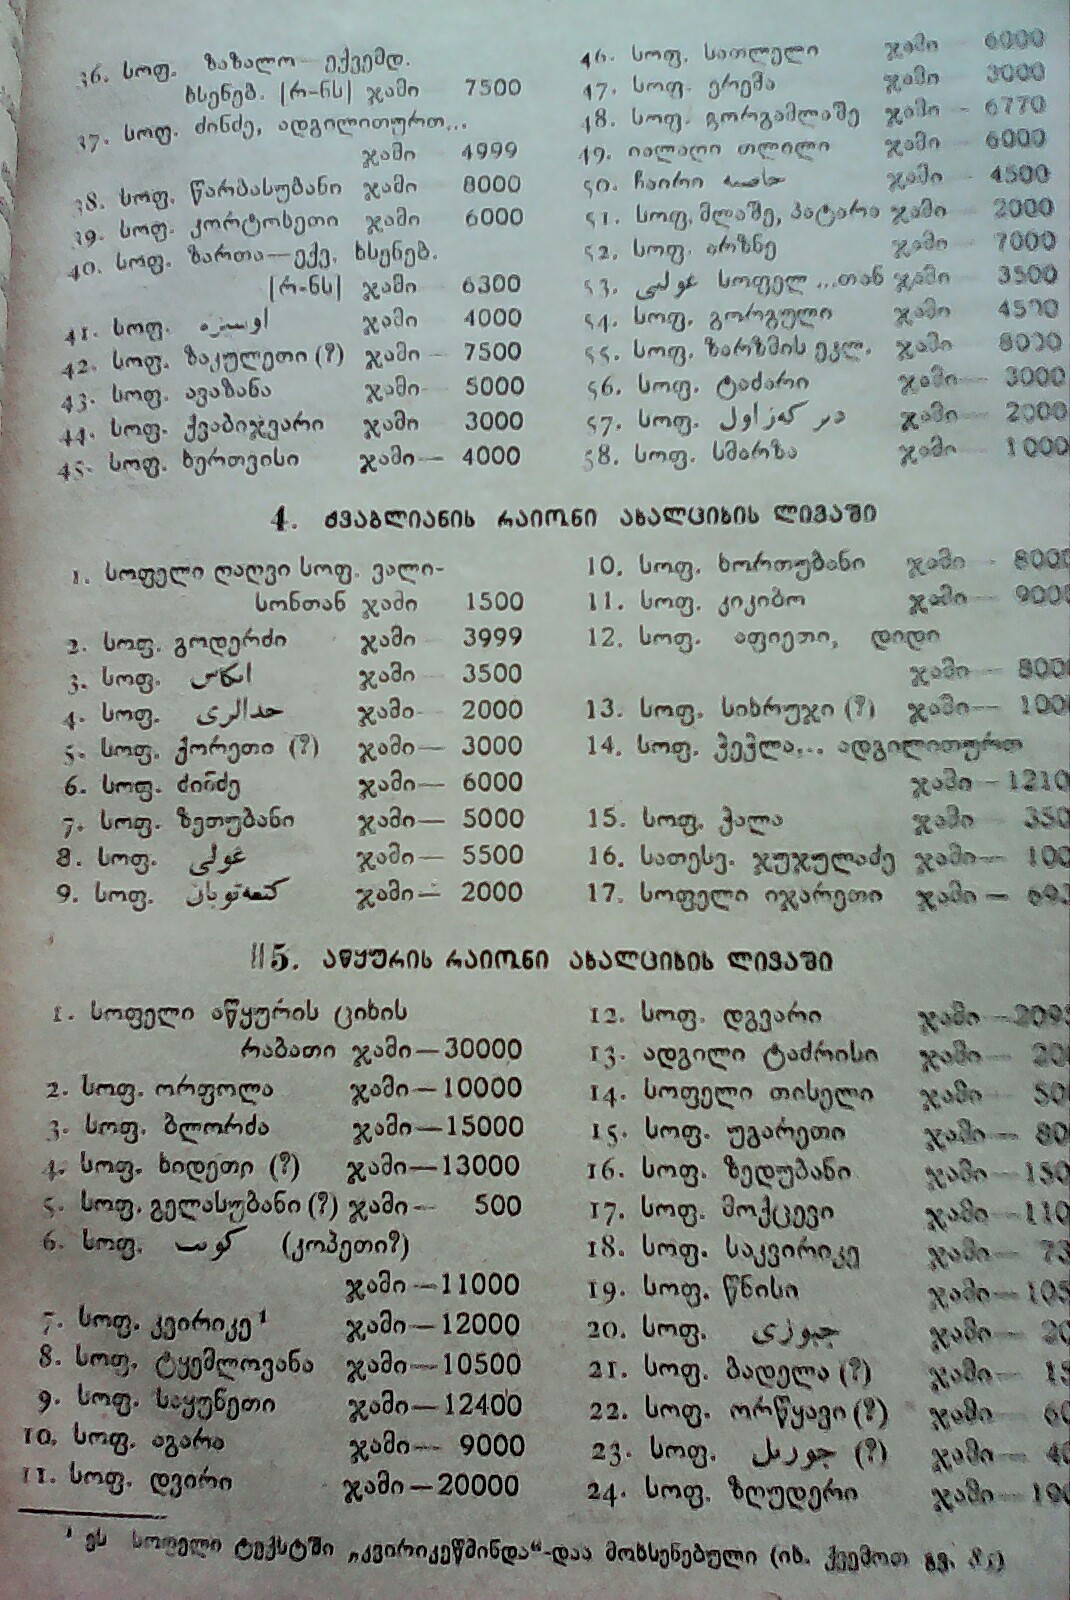 36. სოფ. ზაზალო—ექვემდ.
ხსენებ. |რ-ნს| ჯამი 7500
37. სოფ. ძინძე, ადგილითურთ...
ჯამი 4999
38. სოფ. წარბასუბანი ჯამი 8000
39. სოფ. კორტოხეთი ჯამი 6000
40. სოფ. ზართა—ექვ. ხსენებ.
|რ-ნს| ჯამი 6300
41. სოფ. ჯამი 4000
42. სოფ. ზაკულეთი (?) ჯამი — 7500
43. სოფ. ავაზანა ჯამი — 5000
44. სოფ. ქვაბიჯვარი ჯამი 3000
45. სოფ. ხერთვისი ჯამი — 4000
46. სოფ. სათლელი ჯამი — 6000
47. სოფ. ერემა ჯამი — 3000
48. სოფ. გორგამლაშე ჯამი — 6770
49. იალაღი თლილი ჯამი — 6000
50. ჩაირი ჯამი — 4500
51. სოფ. მლაშე, პატარა ჯამი — 2000
52. სოფ. არზნე ჯამი — 7000
53. غولى სოფელ ...თან ჯამი — 3500
54. სოფ. გორგული ჯამი — 4500
55. სოფ. ზარზმის ეკლ. ჯამი — 8000
56. სოფ. ტაძარი ჯამი — 3000
57. სოფ. ჯამი — 2000
58. სოფ. სმარზა ჯამი — 1000
4. ქვაბლიანის რაიონი ახალციხის ლივაში
1. სოფელი ღაღვი სოფ. ვალი-
სონთან ჯამი 1500
2. სოფ. გოდერძი ჯამი — 3999
3. სოფ. ჯამი — 3500
4. სოფ. حدالرى ჯამი — 2000
5. სოფ. ქორეთი (?) ჯამი — 3000
6. სოფ. ძინძე ჯამი — 6000
7. სოფ. ზეთუბანი ჯამი — 5000
8. სოფ. غولى ჯამი — 5500
9. სოფ. ჯამი — 2000
10. სოფ. ხორთუბანი ჯამი — 8000
11. სოფ. კიკიბო ჯამი — 9000
12. სოფ. აფიეთი, დიდი
ჯამი — 800
13. სოფ. სიხრუჯი (?) ჯამი — 100
14. სოფ. ჰეჰლა... ადგილითურთ
ჯამი — 1210
15. სოფ. ჭალა ჯამი — 350
16. სათესვ. ჯუჯულაძე ჯამი — 100
17. სოფელი იჯარეთი ჯამი — 693
||5. აწყურის რაიონი ახალციხის ლივაში
1. სოფელი აწყურის ციხის
რაბათი ჯამი — 30000
2. სოფ. ორფოლა ჯამი — 10000
3. სოფ. ბლორძა ჯამი — 15000
4. სოფ. ხიდეთი (?) ჯამი — 13000
5. სოფ. გელასუბანი (?) ჯამი — 500
6. სოფ. (კოპეთი?)
ჯამი — 11000
7. სოფ. კვირიკე¹ ჯამი — 12000
8. სოფ. ტყემლოვანა ჯამი — 10500
9. სოფ. საყუნეთი ჯამი — 12400
10. სოფ. აგარა ჯამი — 9000
11. სოფ. დვირი ჯამი — 20000
12. სოფ. დგვარი ჯამი — 2095
13. ადგილი ტაძრისი ჯამი — 20
14. სოფელი თისელი ჯამი — 50
15. სოფ. უგარეთი ჯამი — 80
16. სოფ. ზედუბანი ჯამი — 130
17. სოფ. მოქცევი ჯამი — 110
18. სოფ. საკვირიკე ჯამი — 73
19. სოფ. წნისი ჯამი — 105
20. სოფ. ჯამი — 20
21. სოფ. ბადელა (?) ჯამი — 15
22. სოფ. ორწყავი (?) ჯამი — 60
23. სოფ. (?) ჯამი — 40
24. სოფ. ზღუდერი ჯამი — 100
¹ ეს სოფელი ტექსტში „კვირიკეწმინდა“-დაა მოხსენებული (იხ. ქვემოთ გვ.